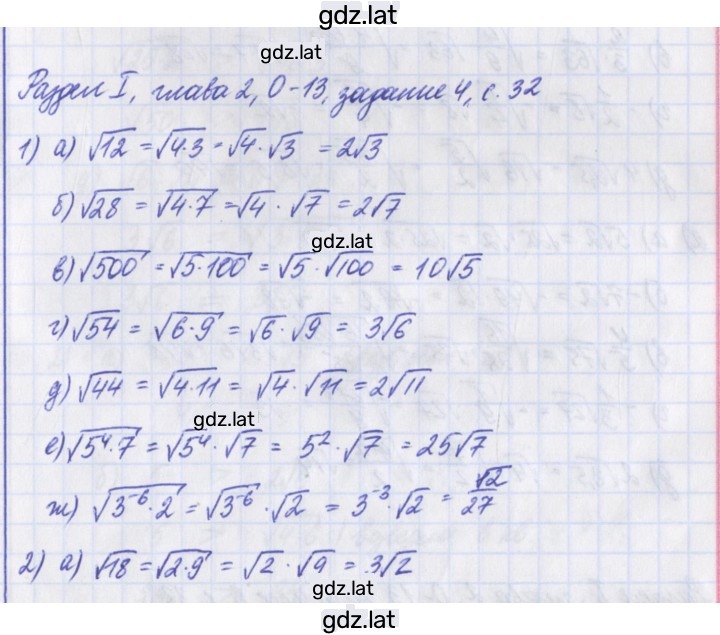 gdz.lat
gdz.lat
Раздел I, глава 2, О-13, задание 4, с. 32
1) а) √12 = √4·3 = √4 · √3 = 2√3
б) √28 = √4·7 = √4 · √7 = 2√7
gdz.lat
в) √500 = √5·100 = √5 · √100 = 10√5
г) √54 = √6·9 = √6 · √9 = 3√6
д) √44 = √4·11 = √4 · √11 = 2√11
gdz.lat
е) √5⁴·7 = √5⁴ · √7 = 5² · √7 = 25√7
ж) √3⁻⁶·2 = √3⁻⁶ · √2 = 3⁻³ · √2 = √2/27
2) а) √18 = √2·9 = √2 · √9 = 3√2
gdz.lat
gdz.lat